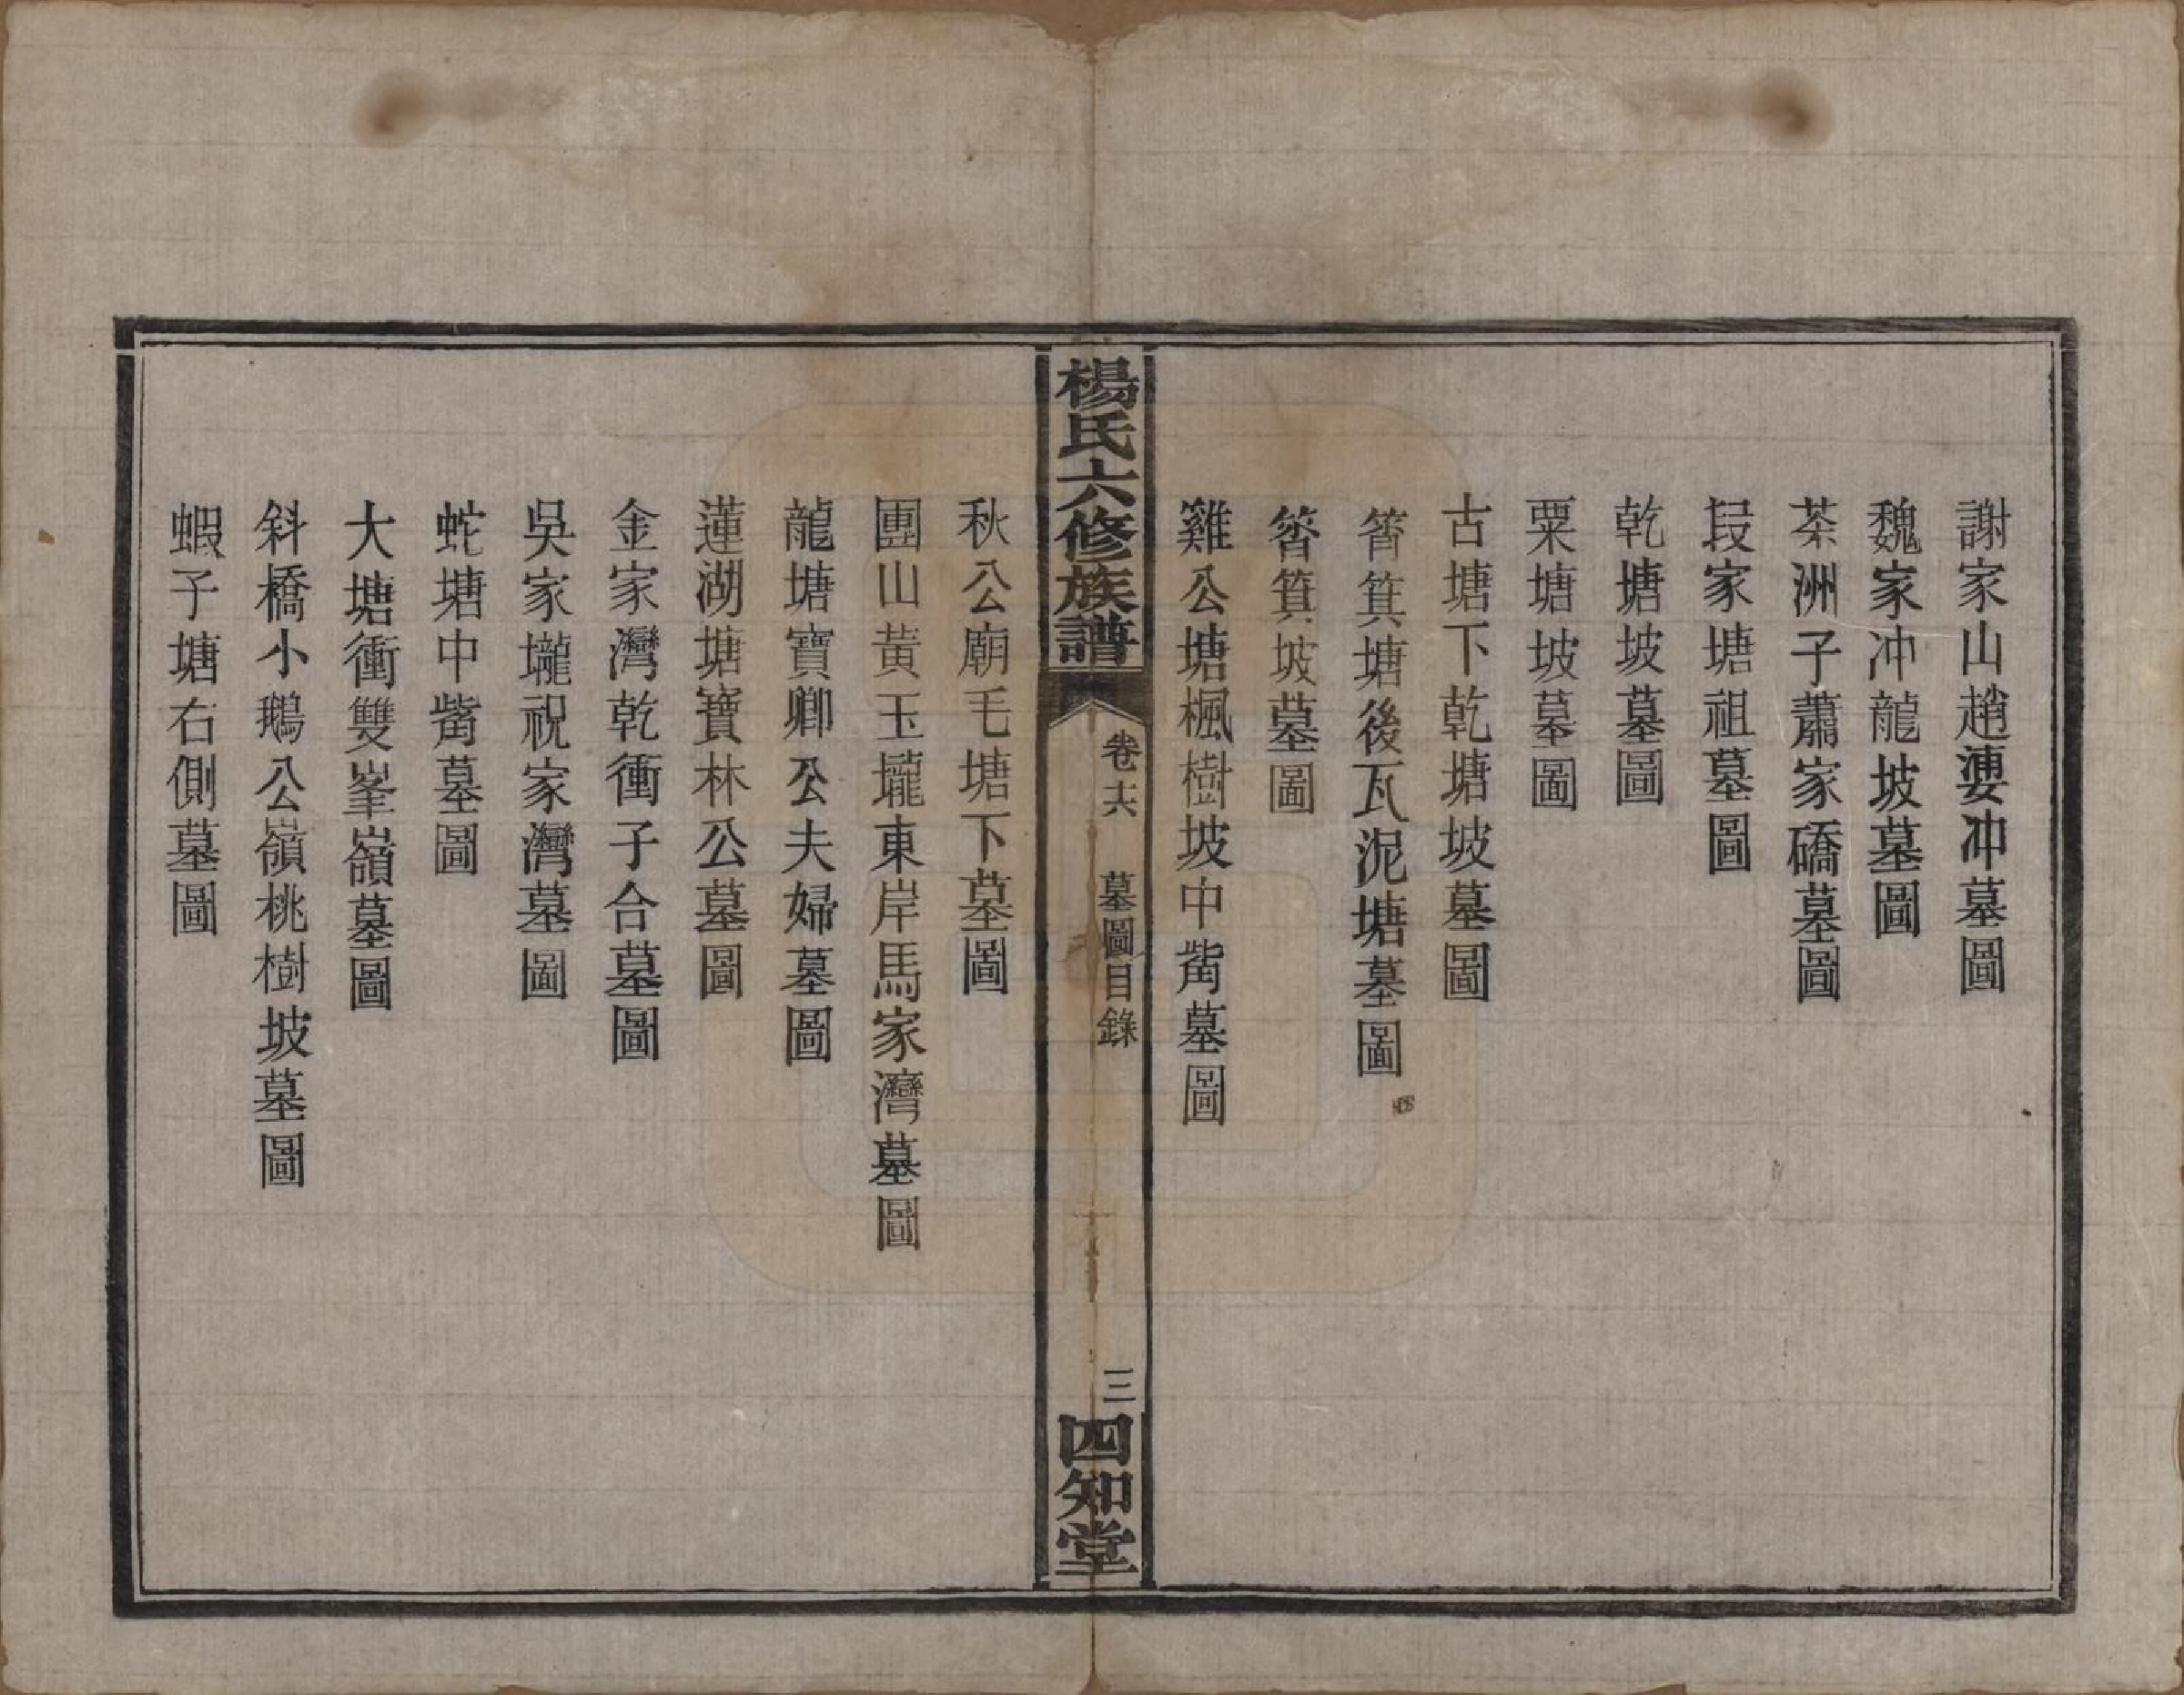 謝家山趙婁冲墓圖
魏家冲龍坡墓圖
茶洲子蕭家礄墓圖
段家塘祖墓圖
乾塘坡墓圖
粟塘坡墓圖
古塘下乾塘坡墓圖
筲箕塘後瓦泥塘墓圖
筲箕坡墓圖
雞公塘楓樹坡中嘴墓圖
楊氏六修族譜
卷十六
墓圖目錄
三
四知堂
秋公廟毛塘下墓圖
團山黃玉壠東岸馬家灣墓圖
龍塘寶卿公夫婦墓圖
蓮湖塘寶林公墓圖
金家灣乾衝子合墓圖
吳家壠祝家灣墓圖
蛇塘中觜墓圖
大塘衝雙峯嶺墓圖
斜橋小鵝公嶺桃樹坡墓圖
蝦子塘右側墓圖